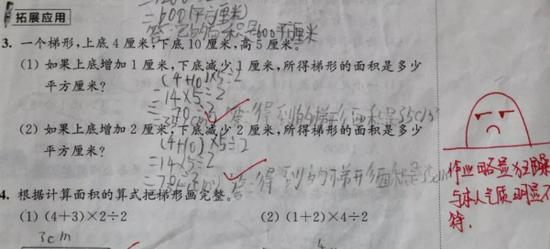 =600(平方厘米)
拓展应用
3. 一个梯形,上底 4 厘米,下底 10 厘米,高 5 厘米。
(1) 如果上底增加 1 厘米,下底减少 1 厘米,所得梯形的面积是多少
平方厘米?
(4+10)×5÷2
=14×5÷2
=70÷2
答:得到的梯形面积是35
(2) 如果上底增加 2 厘米,下底减少 2 厘米,所得梯形的面积是多少
平方厘米?
(4+10)×5÷2
=14×5÷2
=70÷2
答:得到的梯形面积是35
4. 根据计算面积的算式把梯形画完整。
(1) (4+3)×2÷2
(2) (1+2)×4÷2
3cm
作业略显狂躁
与本人气质明显不
符.